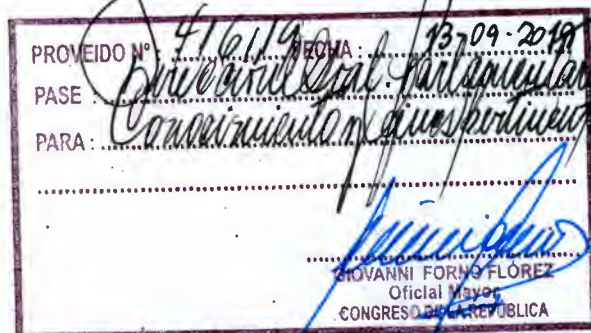 PROVEIDO N°: 41619 FECHA: 13-09-2019
PASE: Dirección Gral. Parlamentaria
PARA: Conocimiento y fines pertinentes
GIOVANNI FORNO FLÓREZ
Oficial Mayor
CONGRESO DE LA REPÚBLICA